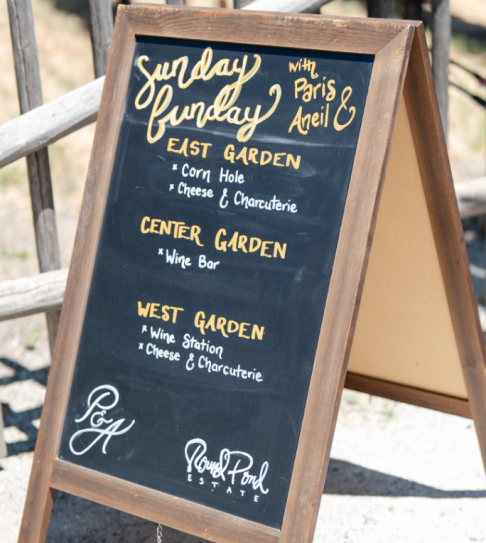 Sunday
Funday
with
Paris &
Aneil
EAST GARDEN
* Corn Hole
* Cheese & Charcuterie
CENTER GARDEN
* Wine Bar
WEST GARDEN
* Wine Station
* Cheese & Charcuterie
P&A
Round Pond
ESTATE